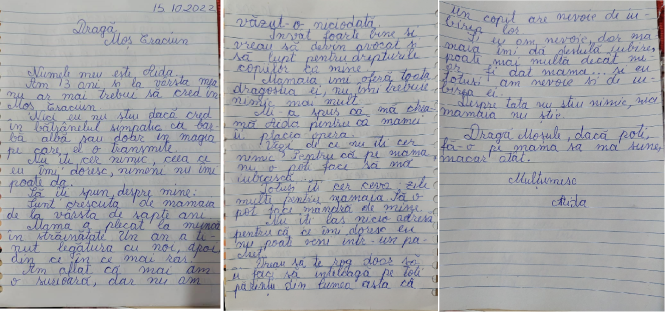 15.10.2022
Dragă
Moș Crăciun
Numele meu este Aida.
Am 13 ani și la vârsta mea
nu ar mai trebui să cred în
Moș Crăciun
Nici eu nu știu dacă cred
în bătrânelul simpatic cu bar
bă albă sau doar în magia
pe care el o transmite.
Nu îți cer nimic, ceea ce
eu îmi doresc, nimeni nu îmi
poate da.
Să îți spun despre mine:
Sunt crescută de mamaia
de la vârsta de șapte ani
Mama a plecat la muncă
în străinătate. Un an a ți-
nut legătura cu noi, apoi
din ce în ce mai rar.
Am aflat că mai am
o surioară, dar nu am
văzut-o niciodată.
Învăț foarte bine și
vreau să devin avocat și
să lupt pentru drepturile
copiilor ca mine.
Mamaia îmi oferă toată
dragostea ei, nu îmi trebuie
nimic mai mult.
Mi-a spus că mă chea-
mă Aida pentru că mamei
îi plăcea opera.
Vezi de ce nu îți cer
nimic? Pentru că pe mama
nu o poți face să mă
iubească.
Totuși îți cer ceva, zile
multe pentru mamaia să o
pot face mândră de mine.
Nu îți las nicio adresă
pentru că ce îmi doresc eu
nu poate veni într-un pa-
chet.
Vreau să te rog doar să
îi faci să înțeleagă pe toți
părinții din lumea asta că
Un copil are nevoie de iu-
birea lor.
Și eu am nevoie, dar ma-
maia îmi dă destulă iubire,
poate mai multă decât mi-
ar fi dat mama... și eu
totuși am nevoie și de iu-
birea ei.
Despre tata nu știu nimic, nici
mamaia nu știe.
Dragă Moșule, dacă poți,
fă-o pe mama să mă sune,
măcar atât.
Mulțumesc
Aida